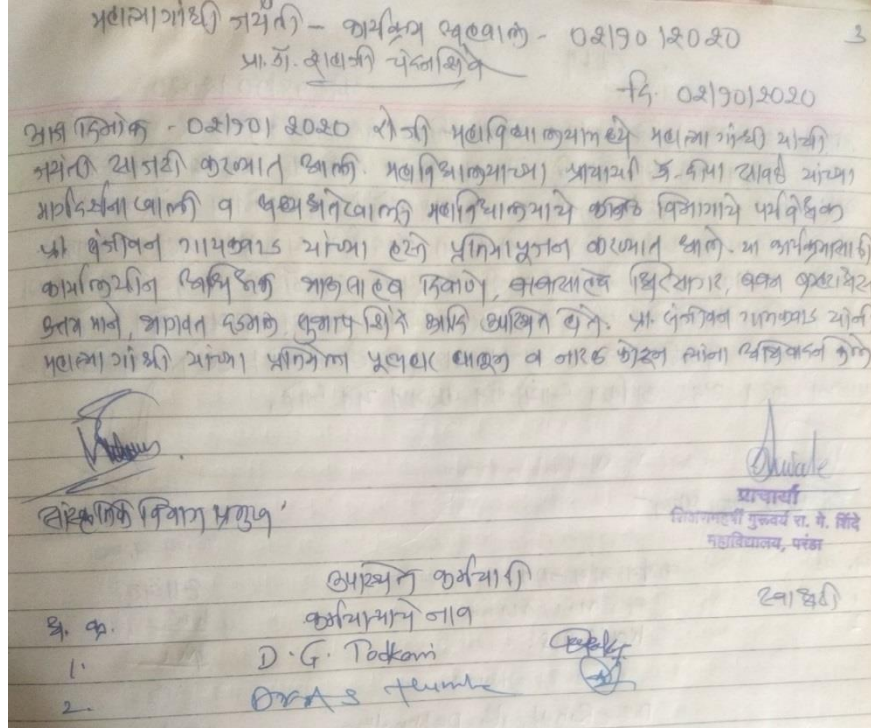 महात्मा गांधी जयंती - कार्यक्रम अहवाल - ०२/१०/२०२० 3
प्रा. डॉ. शहाजी चंदनशिवे
दि. ०२/१०/२०२०
आज दिनांक - ०२/१०/२०२० रोजी महाविद्यालयामध्ये महात्मा गांधी यांची
जयंती साजरी करण्यात आली. महाविद्यालयाच्या प्राचार्या डॉ. दीपा सावळे यांच्या
मार्गदर्शनाखाली व अध्यक्षतेखाली महाविद्यालयाचे कनिष्ठ विभागाचे पर्यवेक्षक
प्रा. संजीवन गायकवाड यांच्या हस्ते प्रतिमापूजन करण्यात आले. या कार्यक्रमासाठी
कार्यालयीन अधिक्षक भाऊसाहेब दिवाणे, बाबासाहेब क्षिरसागर, बबन
उत्तम माने, भागवत दडमल, शिंदे आदि उपस्थित होते. प्रा. संजीवन गायकवाड यांनी
महात्मा गांधी यांच्या प्रतिमेला पुष्पहार घालून व नारळ फोडून त्यांना अभिवादन केले
सांस्कृतिक विभाग प्रमुख
प्राचार्या
शिक्षणमहर्षी गुरूवर्य रा. गे. शिंदे
महाविद्यालय, परंडा
उपस्थित कर्मचारी
अ. क्र. कर्मचाऱ्याचे नाव स्वाक्षरी
1.
2.